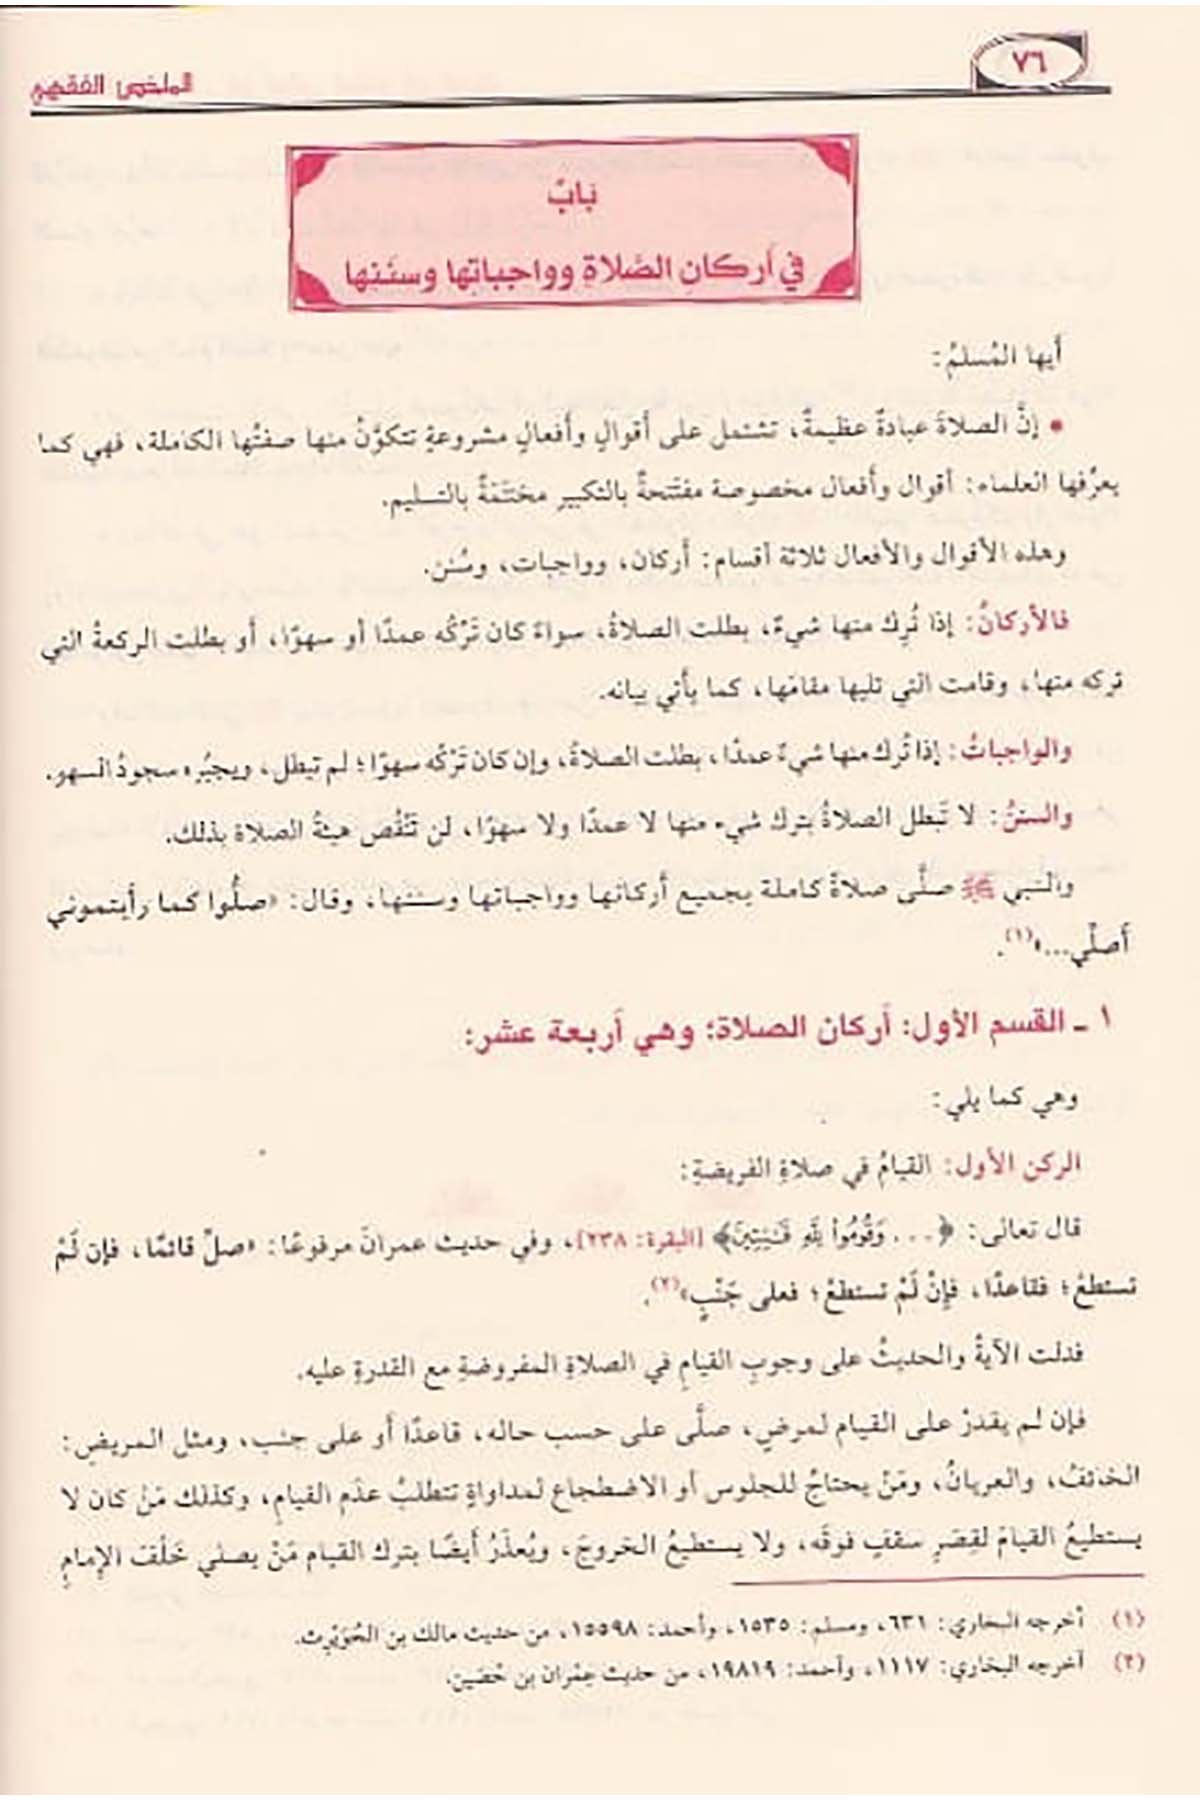 ٧٦
الملخص الفقهي
بَابٌ
في أركان الصَّلاة وواجباتها وسنَنها
أيها المُسلمُ:
• إنَّ الصلاةَ عبادةٌ عظيمةٌ، تشتمل على أقوالٍ وأفعالٍ مشروعةٍ تتكوَّنُ منها صفتُها الكاملة، فهي كما
يعرِّفها العلماء: أقوال وأفعال مخصوصة مفتَتحةٌ بالتكبير مختَتَمةٌ بالتسليم.
وهذه الأقوال والأفعال ثلاثة أقسام: أركان، وواجبات، وسُنن.
فالأركانُ: إذا تُرِك منها شيءٌ، بطلت الصلاةُ، سواءٌ كان تَرْكُه عمدًا أو سهوًا، أو بطلت الركعةُ التي
تركه منها، وقامت التي تليها مقامَها، كما يأتي بيانه.
والواجباتُ: إذا تُرك منها شيءٌ عمدًا، بطلت الصلاةُ، وإن كان تَرْكُه سهوًا؛ لم تبطل، ويجبُره سجودُ السهو.
والسننُ: لا تَبطل الصلاةُ بترك شيء منها لا عمدًا ولا سهوًا، لن تَنْقُص هيئةُ الصلاة بذلك.
والنبي ﷺ صلَّى صلاةً كاملة بجميع أركانها وواجباتها وسننها، وقال: «صلُّوا كما رأيتموني
أصلِّي...»(١).
١ ـ القسم الأول: أركان الصلاة؛ وهي أربعة عشر:
وهي كما يلي:
الركن الأول: القيامُ في صلاةِ الفريضةِ:
قال تعالى: ﴿... وَقُومُوا۟ لِلَّهِ قَـٰنِتِينَ﴾ [البقرة: ٢٣٨]، وفي حديث عمرانَ مرفوعًا: «صلِّ قائمًا، فإن لَمْ
تستطعْ؛ فقاعدًا، فإنْ لَمْ تستطعْ؛ فعلى جَنْبٍ»(٢).
فدلت الآيةُ والحديثُ على وجوبِ القيامِ في الصلاةِ المفروضةِ مع القدرةِ عليه.
فإن لم يقدرْ على القيام لمرضٍ، صلَّى على حسب حاله، قاعدًا أو على جنب، ومثل المريضِ:
الخائفُ، والعريانُ، ومَنْ يحتاجُ للجلوس أو الاضطجاع لمداواةٍ تتطلبُ عدَم القيام، وكذلك مَنْ كان لا
يستطيعُ القيامَ لقِصَرِ سقفٍ فوقَه، ولا يستطيعُ الخروجَ، ويُعذَرُ أيضًا بترك القيام مَنْ يصلي خَلْفَ الإمامِ
(١) أخرجه البخاري: ٦٣١، ومسلم: ١٥٣٥، وأحمد: ١٥٥٩٨، من حديث مالك بن الحُوَيْرِث.
(٢) أخرجه البخاري: ١١١٧، وأحمد: ١٩٨١٩، من حديث عِمْران بن حُصَين.